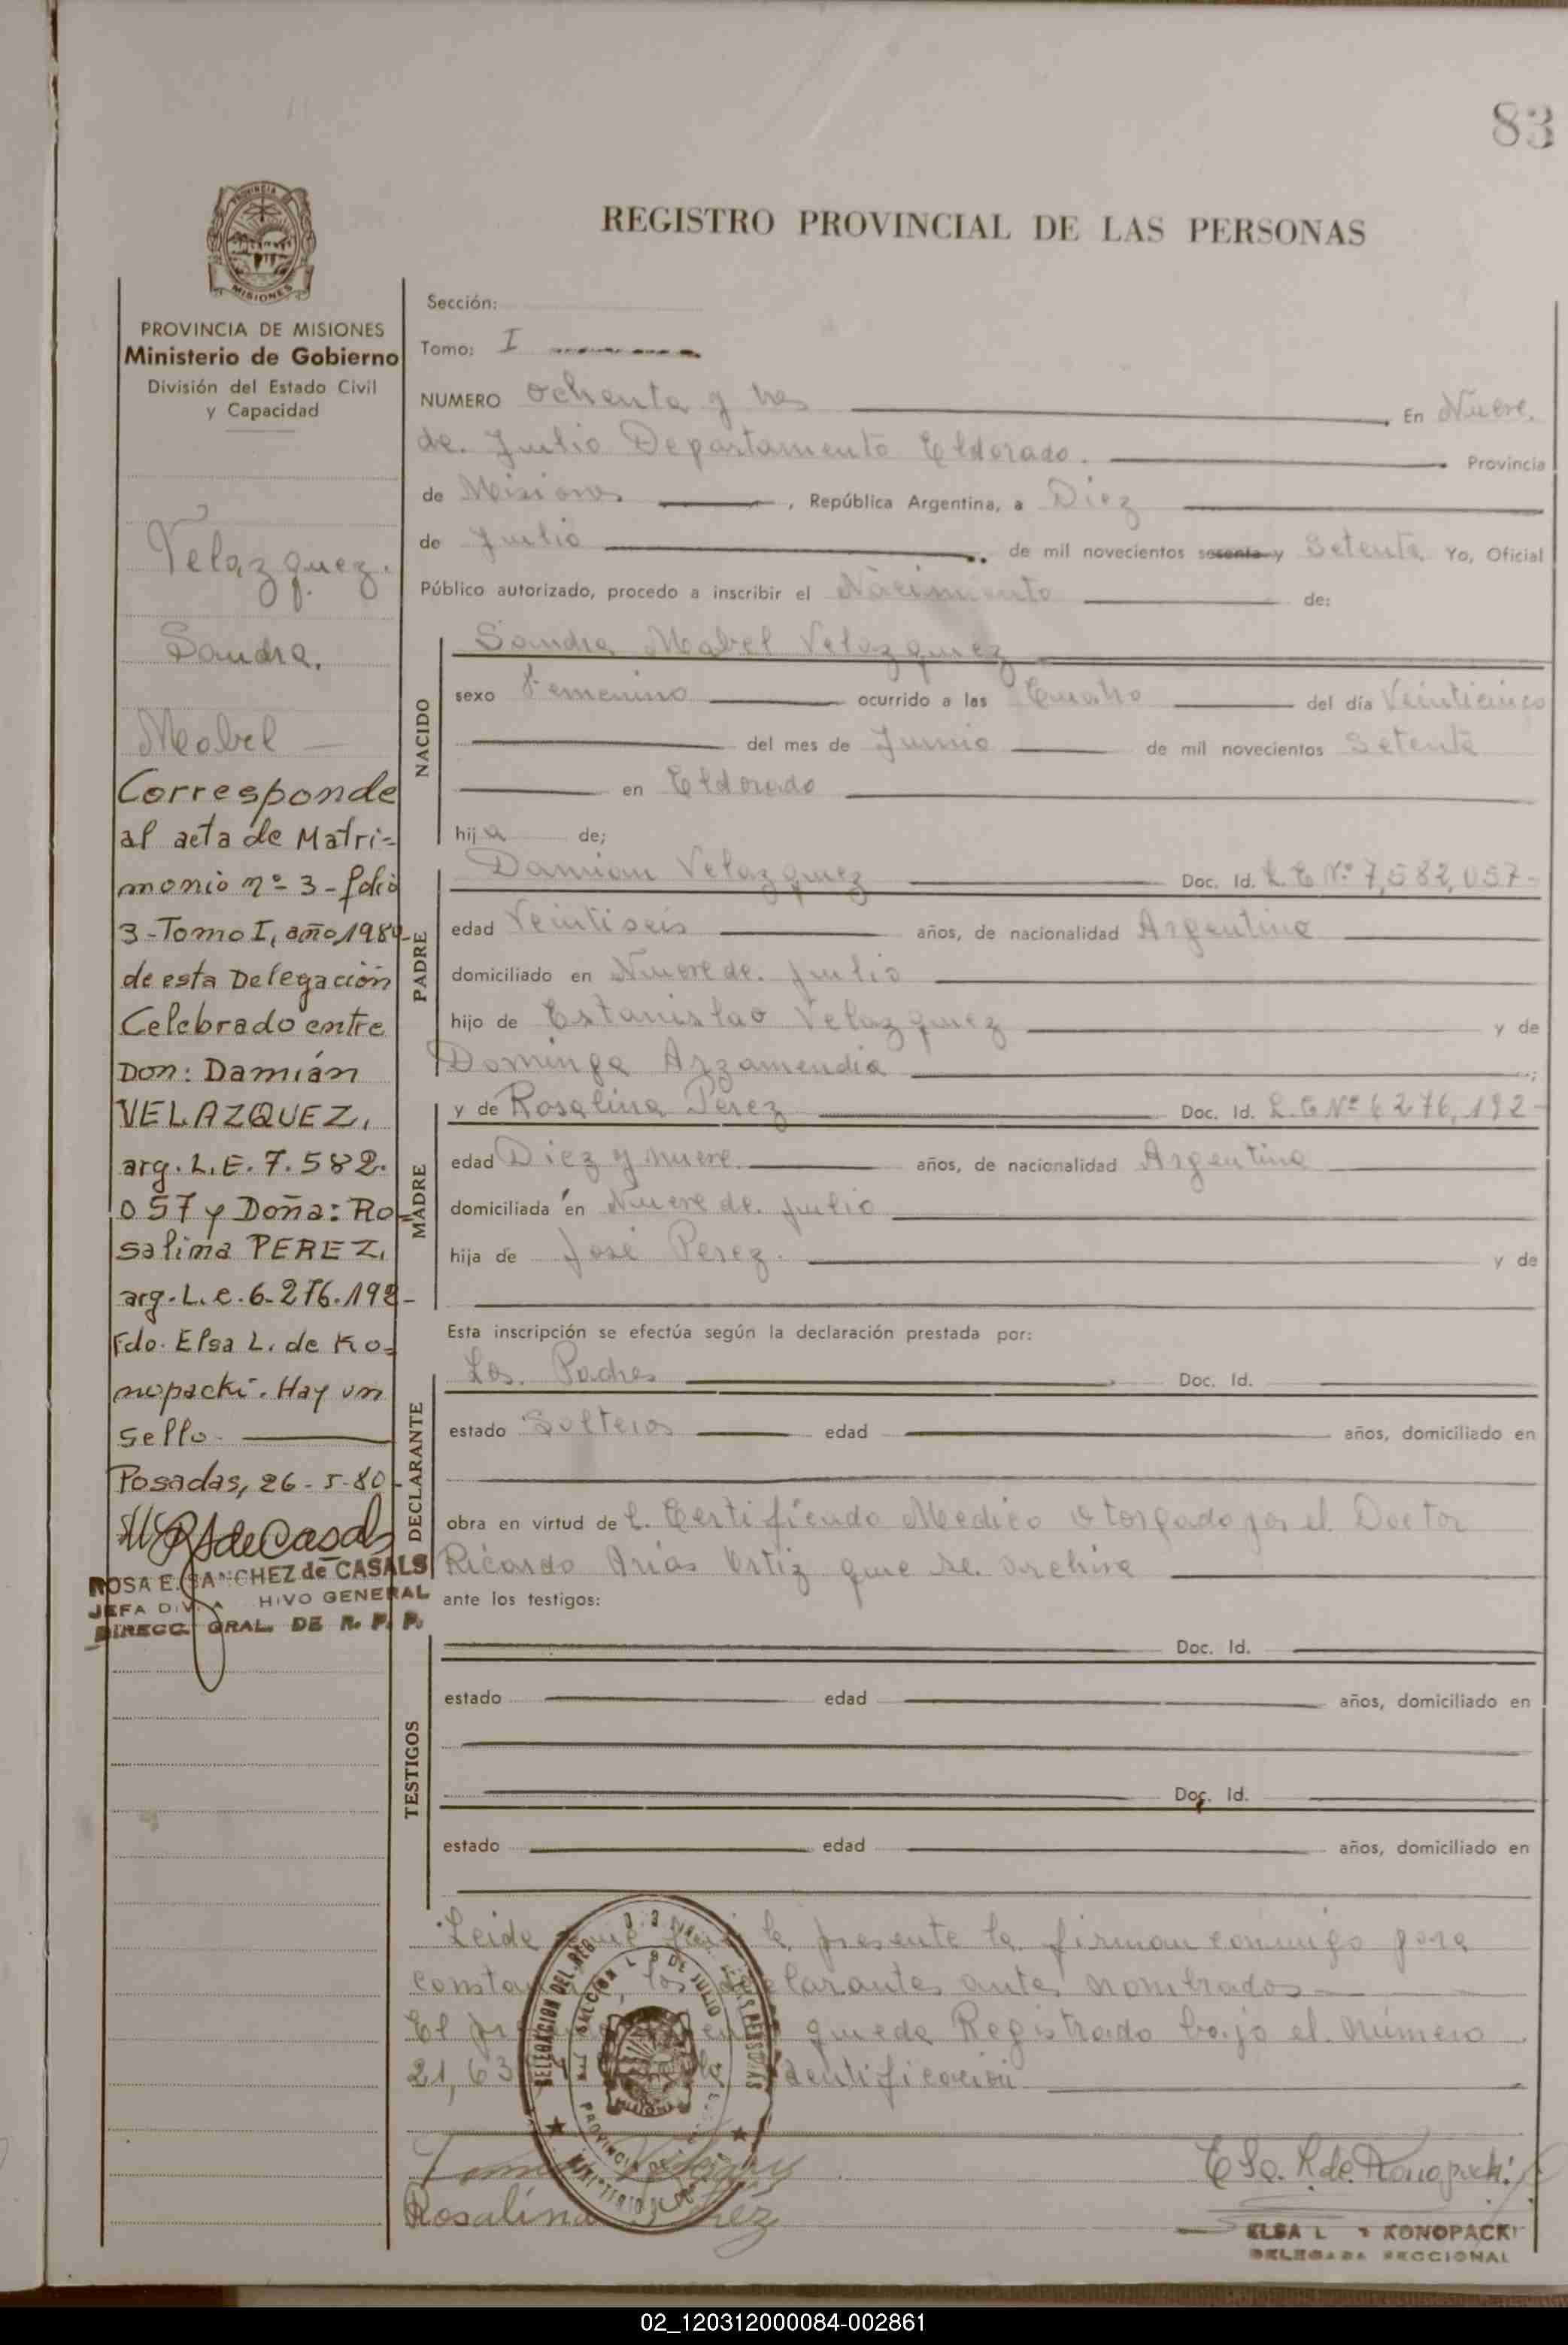 83
PROVINCIA
MISIONES
REGISTRO PROVINCIAL DE LAS PERSONAS
PROVINCIA DE MISIONES
Ministerio de Gobierno
División del Estado Civil
y Capacidad
Velazquez.
Sandra.
Mabel
Corresponde
al acta de Matri=
monio nº 3 - folio
3 - Tomo I, año 1980
de esta Delegación
Celebrado entre
Don: Damián
VELAZQUEZ,
arg. L.E. 7.582.
057 y Doña: Ro=
salina PEREZ,
arg. L.e. 6.276.192-
Fdo. Elsa L. de Ko=
nopacki. Hay un
Sello.
Posadas, 26-5-80-
ROSA E. SANCHEZ de CASALS
JEFA DIV. A HIVO GENERAL
DIRECC. GRAL. DE R. P. P.
Sección:
Tomo: I
NUMERO ochenta y tres En Nueve.
de. Julio Departamento Eldorado. Provincia
de Misiones, República Argentina, a Diez
de Julio de mil novecientos sesenta y Setenta Yo, Oficial
Público autorizado, procedo a inscribir el Nacimiento de:
NACIDO
Sandra Mabel Velazquez
sexo Femenino ocurrido a las Cuatro del día Veinticinco
del mes de Junio de mil novecientos Setenta
en Eldorado
hija de;
PADRE
Damian Velazquez Doc. Id. L.E Nº 7,582,057-
edad Veintiseis años, de nacionalidad Argentina
domiciliado en Nueve de. Julio
hijo de Estanislao Velazquez y de
Dominga Arzamendia;
MADRE
y de Rosalina Perez Doc. Id. L.C Nº 6276,192-
edad Diez y nueve. años, de nacionalidad Argentina
domiciliada en Nueve de. Julio
hija de José Perez. y de
Esta inscripción se efectúa según la declaración prestada por:
DECLARANTE
Los. Padres Doc. Id.
estado Solteros edad años, domiciliado en
obra en virtud de C. Certificado Medico otorgado por el Doctor
Ricardo Arias Ortiz que se. archiva
ante los testigos:
TESTIGOS
Doc. Id.
estado edad años, domiciliado en
Doc. Id.
estado edad años, domiciliado en
Leida que la presente la firman conmigo para
los declarantes ante nombrados
El queda Registrado bajo el. número
21,63 identificacion
DELEGACION DEL REG. DE LAS PERSONAS
9 DE JULIO
PROVINCIA DE
MISIONES
Velazquez
Rosalina Perez
Elsa. L. de. Konopacki
ELSA L KONOPACKI
DELEGADA SECCIONAL
02_120312000084-002861